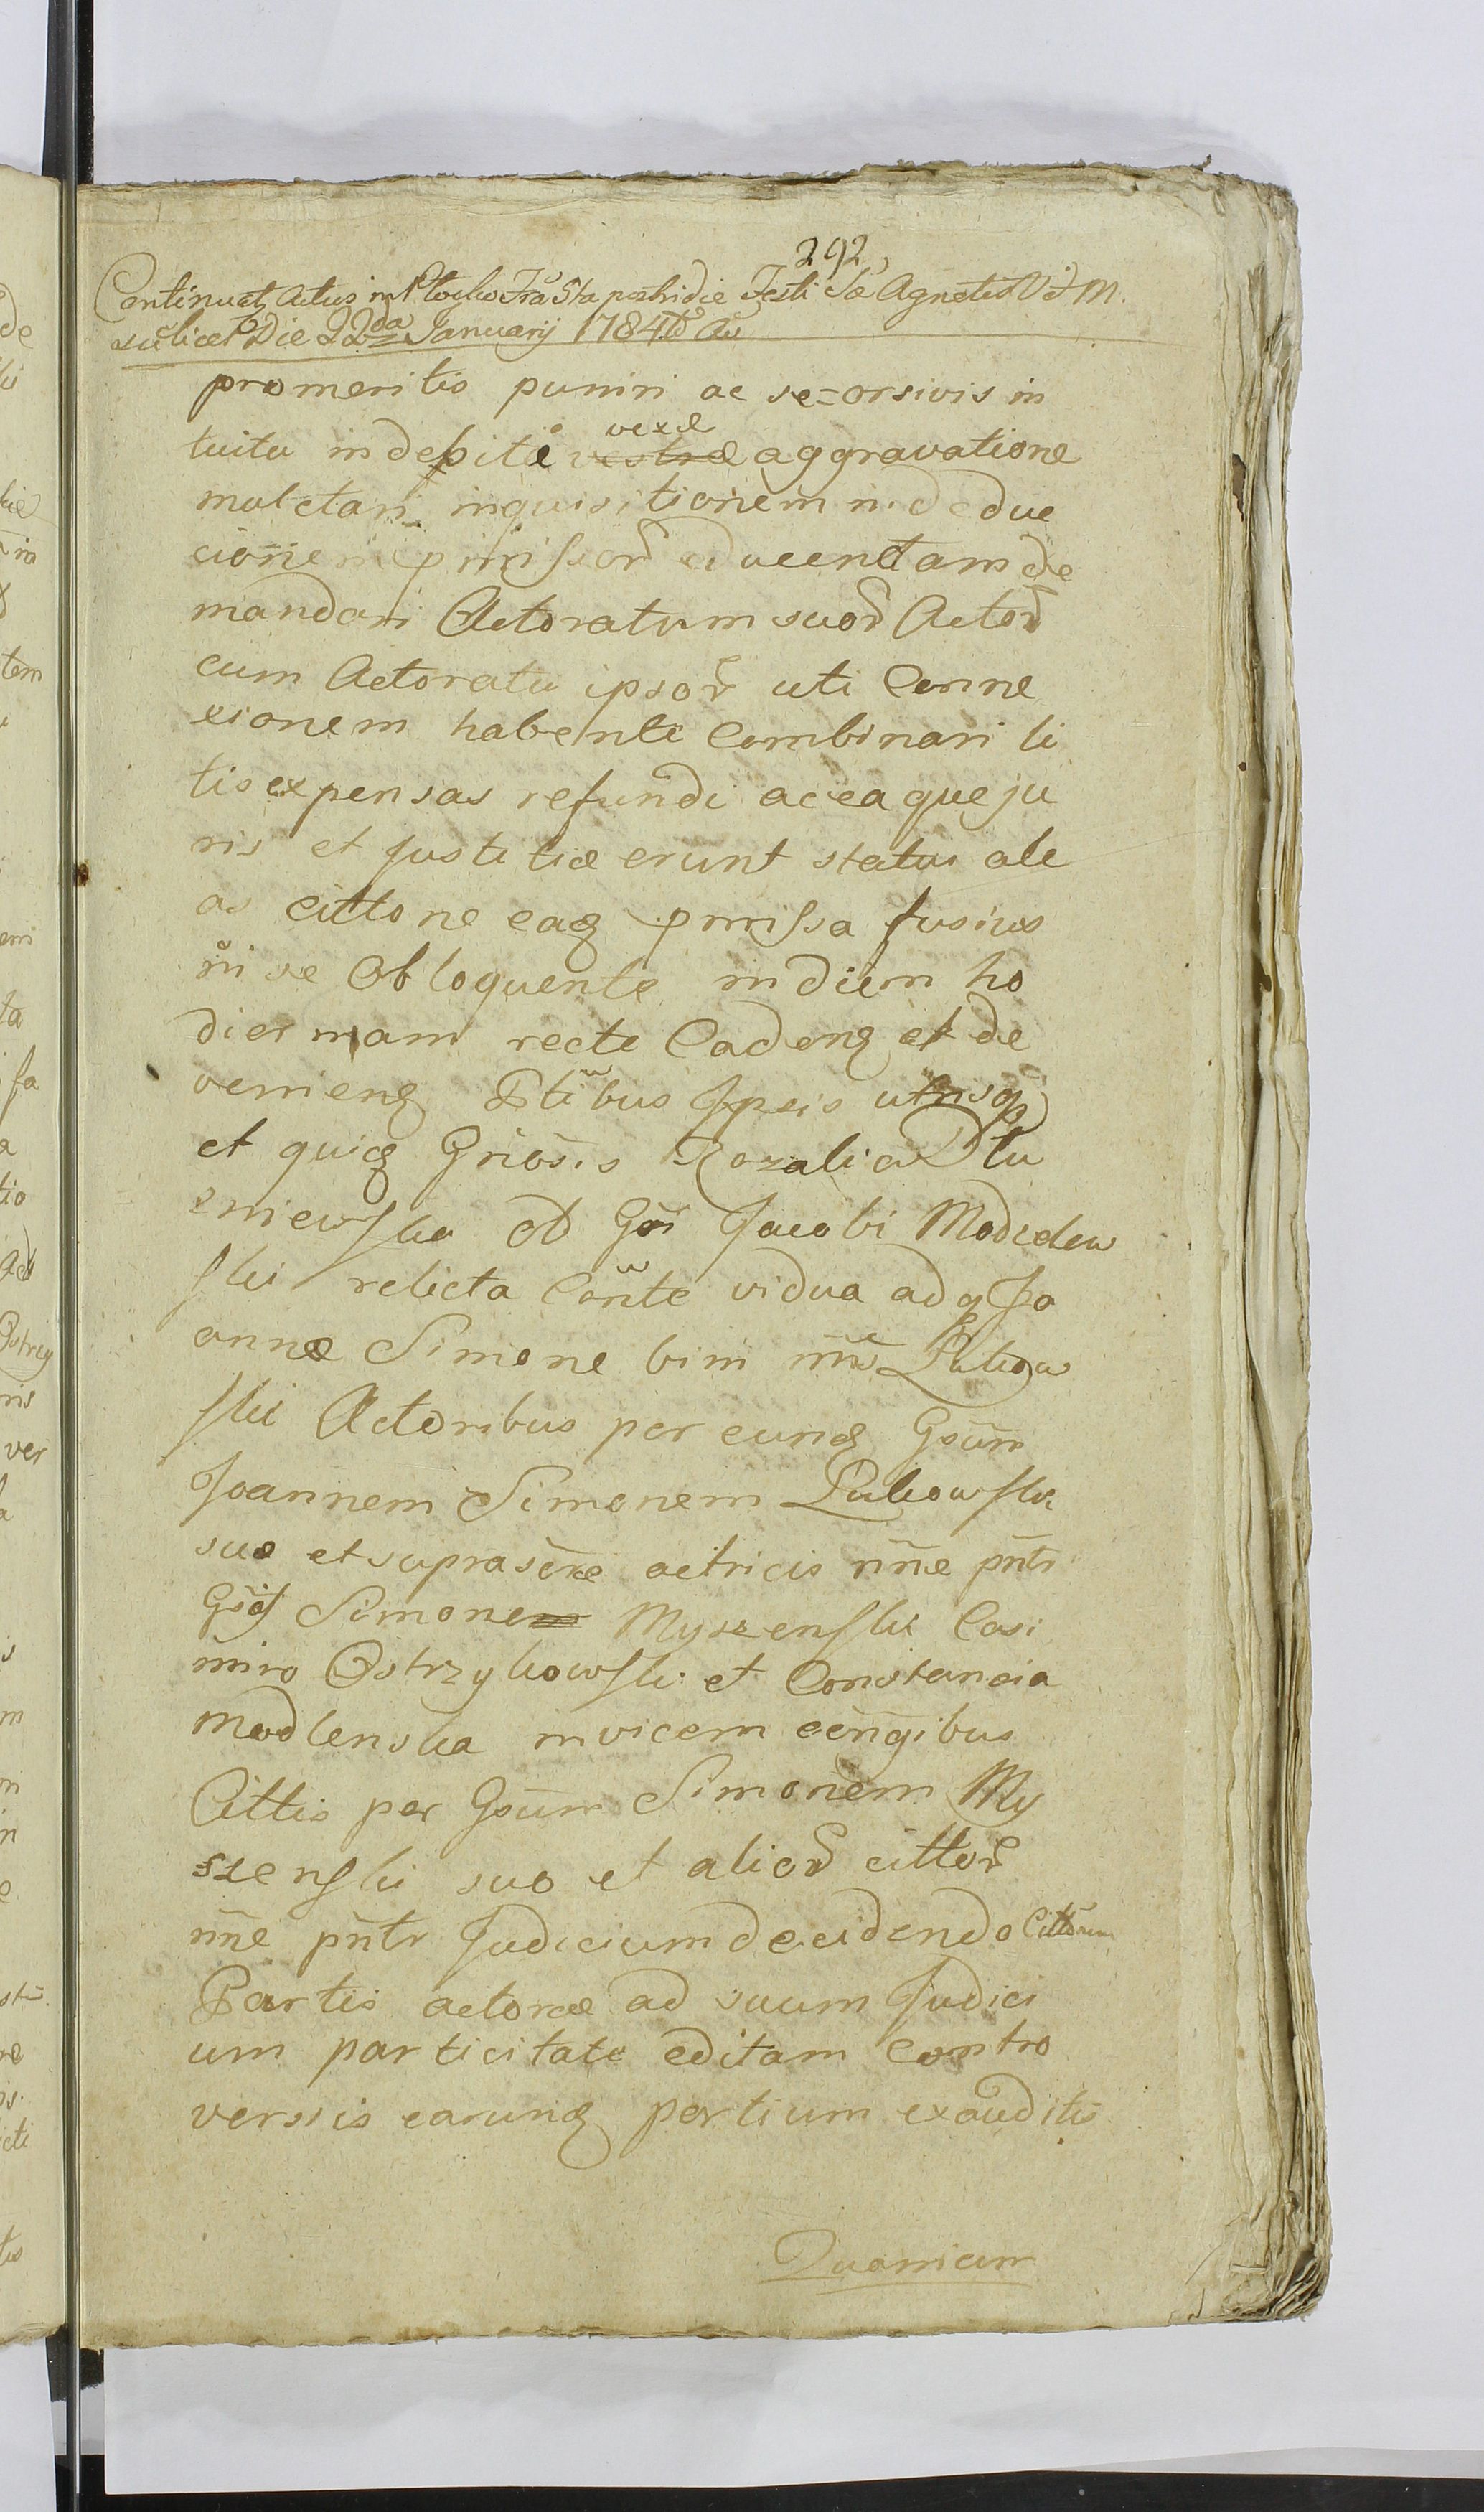 292
Continuatz Actus in Plocko Fra 5ta postridie Festi Sæ Agnetis V et M.
scilicet Die 22da Januarij 1784to Ao
promeritis puniri ac se=orsivis in
tuitu indebitè vexæ aggravatione
mulctari inquisitionem in deduc
cionem pmissoř educentam de
mandari Actoratum suoř Actoř
cum Actoratu ipsoř uti Conne
xionem habenti Combinari li
tis expensas refundi ac ea que ju
ris et Justitiæ erunt statui ale
as cittone eaq pmissa fusius
in se obloquente in diem ho
diernam recte Cadenz et de
venienz Ptibus Ipsis utrisq
et quiq Griosis Rozalia Dłu
niewska Gsi Jacobi Modzelew
ski relicta Cönte vidua adq Jo
anne Simone bini nnů Łukow
ski Actoribus per eunq Gsum
Joannem Simonem Łukowski
suo et suprascræ actricis nñe pñtr
Gsiq Simone Myszenski Casi
miro Ostrzykowski et Constancia
Modlenska invicem cöngibus
Cittis per Gsum Simonem My
szenski suo et alioř cittoř
nñe pñtr Judicium decidendo Cittorum
Partis actoreæ ad suum Judici
um particitate editam contro
versiis earunq partium exauditis
Quonicum